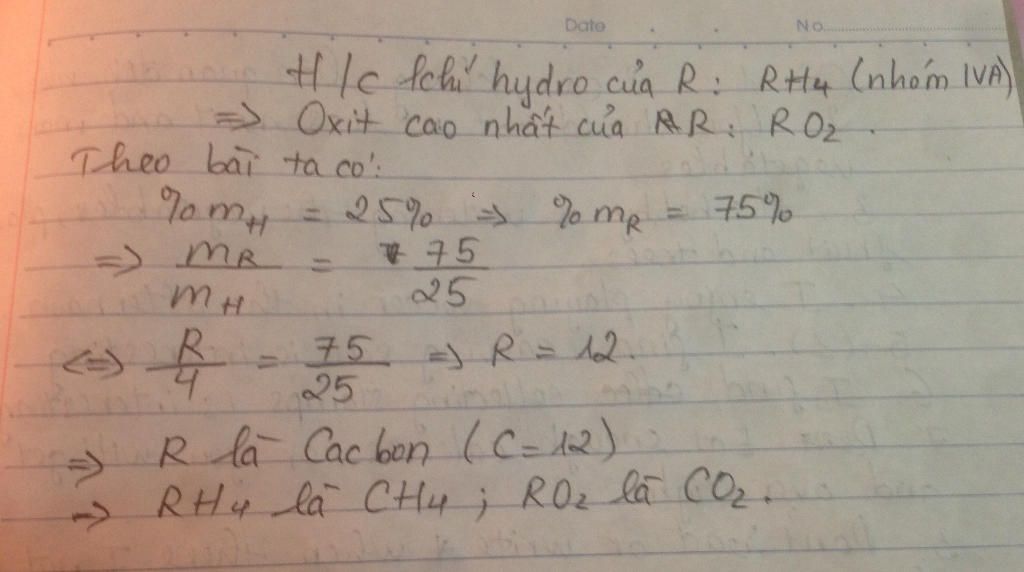 Date No
H/c khí hydro của R: RH4 (nhóm IVA)
=> Oxit cao nhất của R: RO2.
Theo bài ta có:
%mH = 25% => %mR = 75%
=> mR/mH = 75/25
<=> R/4 = 75/25 => R = 12.
=> R là Cacbon (C=12)
-> RH4 là CH4; RO2 là CO2.